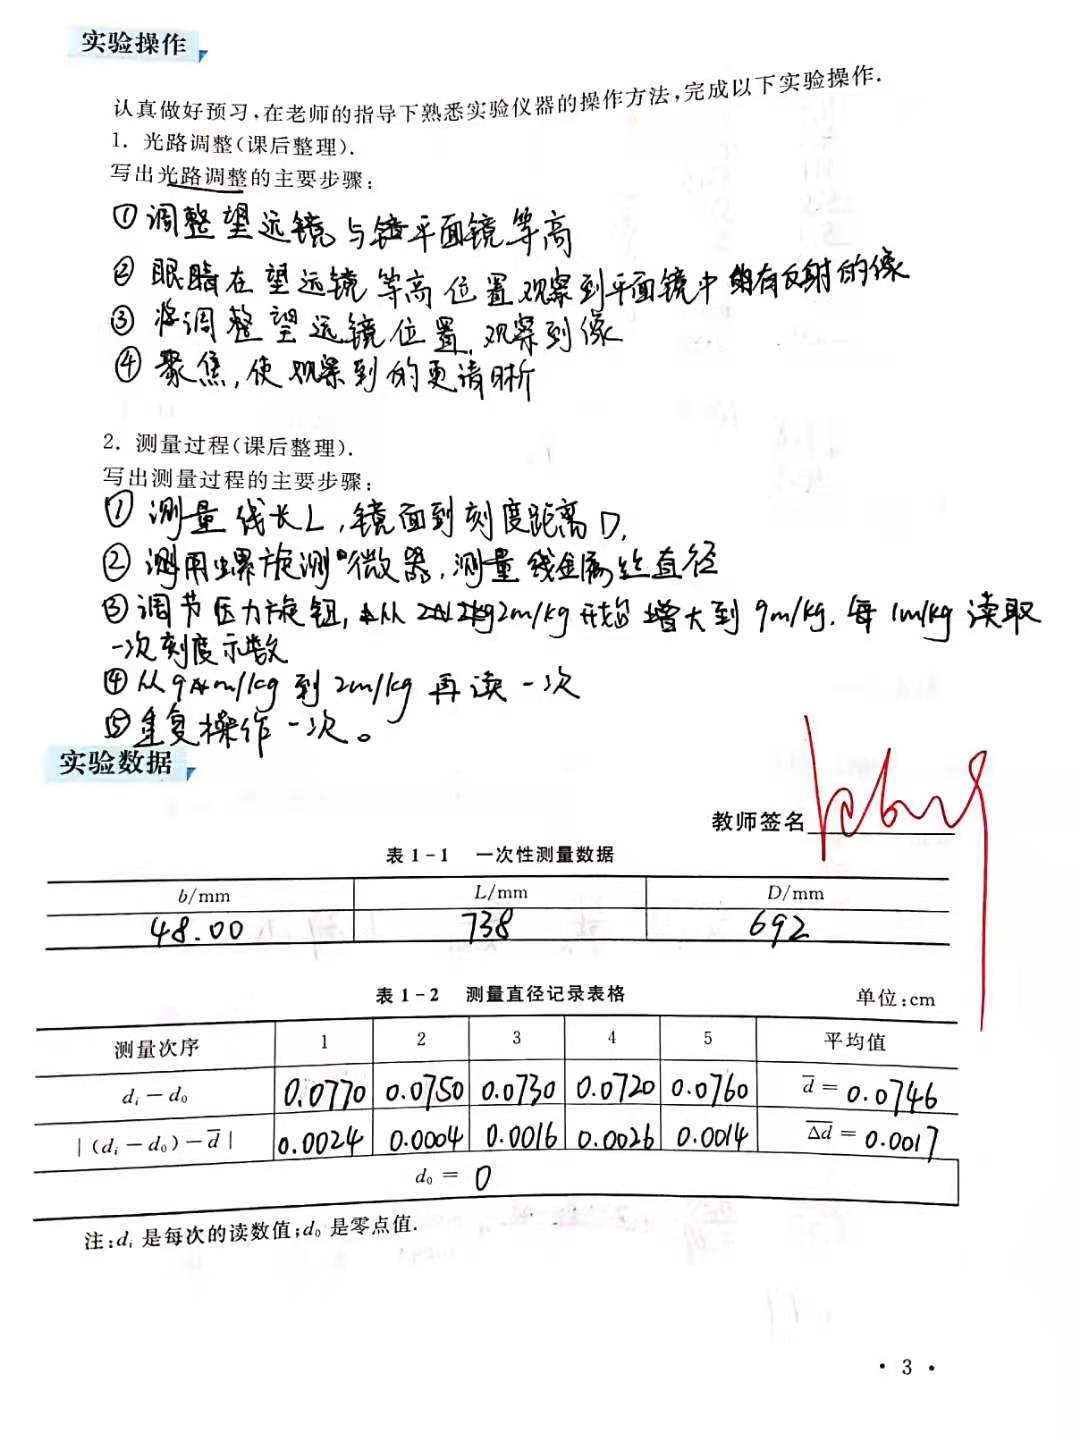 实验操作
认真做好预习,在老师的指导下熟悉实验仪器的操作方法,完成以下实验操作.
1. 光路调整(课后整理).
写出光路调整的主要步骤:
① 调整望远镜与平面镜等高
② 眼睛在望远镜等高位置观察到平面镜中有反射的像
③ 调整望远镜位置,观察到像
④ 聚焦,使观察到的更清晰
2. 测量过程(课后整理).
写出测量过程的主要步骤:
① 测量线长L,镜面到刻度距离D,
② 用螺旋测微器,测量金属丝直径
③ 调节压力旋钮,从2m/kg开始增大到9m/kg.每1m/kg读取
一次刻度示数
④ 从9m/kg到2m/kg再读一次
⑤ 重复操作一次。
实验数据
教师签名
表 1-1 一次性测量数据
b/mm L/mm D/mm
48.00 738 692
表 1-2 测量直径记录表格 单位:cm
测量次序 1 2 3 4 5 平均值
dᵢ-d₀ 0.0770 0.0750 0.0730 0.0720 0.0760 d̄=0.0746
|(dᵢ-d₀)-d̄| 0.0024 0.0004 0.0016 0.0026 0.0014 Δd̄=0.0017
d₀=0
注:dᵢ是每次的读数值;d₀是零点值.
· 3 ·